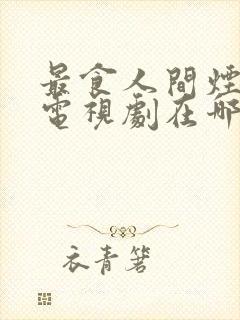 最食人間煙
電視劇在哪
衣青箬